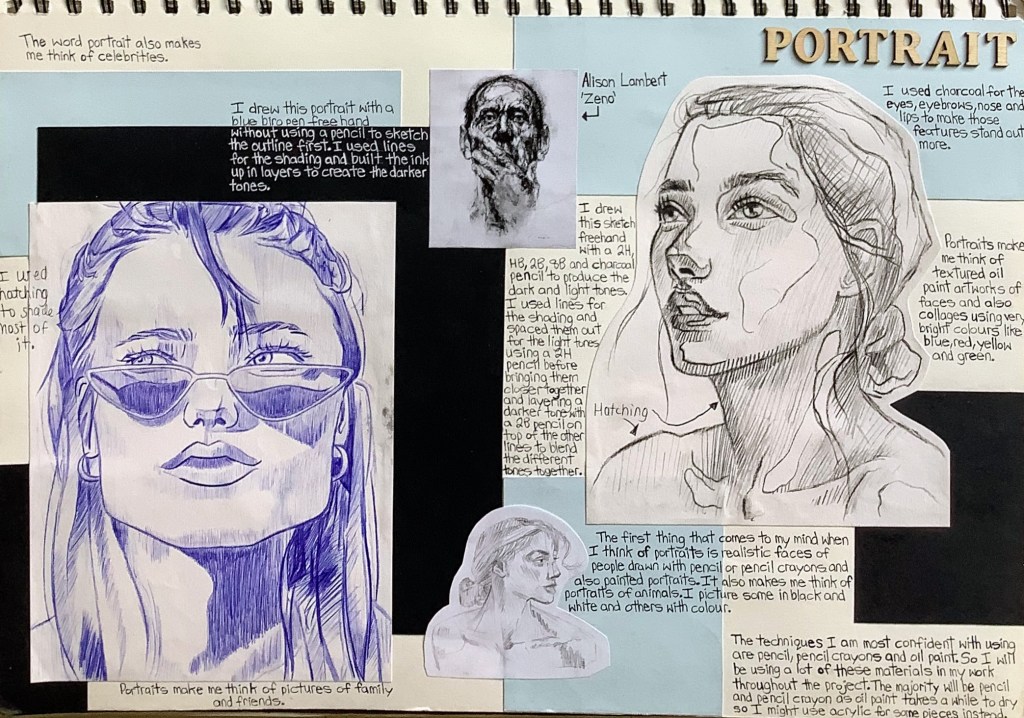 The word portrait also makes
me think of celebrities.
PORTRAIT
I drew this portrait with a
blue biro pen free hand
without using a pencil to sketch
the outline first. I used lines
for the shading and built the ink
up in layers to create the darker
tones.
Alison Lambert
'Zeno'
I used charcoal for the
eyes, eyebrows, nose and
lips to make those
features stand out
more.
I used
hatching
to shade
most of
it.
I drew
this sketch
freehand
with a 2H,
HB, 2B, 8B and charcoal
pencil to produce the
dark and light tones.
I used lines for
the shading and
spaced them out
for the light tones
using a 2H
pencil before
bringing them
closer together
and layering a
darker tone with
a 2B pencil on
top of the other
lines to blend
the different
tones together.
Hatching
Portraits make
me think of
textured oil
paint artworks of
faces and also
collages using very
bright colours like
blue, red, yellow
and green.
The first thing that comes to my mind when
I think of portraits is realistic faces of
people drawn with pencil or pencil crayons and
also painted portraits. It also makes me think of
portraits of animals. I picture some in black and
white and others with colour.
Portraits make me think of pictures of family
and friends.
The techniques I am most confident with using
are pencil, pencil crayons and oil paint. So I will
be using a lot of these materials in my work
throughout the project. The majority will be pencil
and pencil crayon as oil paint takes a while to dry
so I might use acrylic for some pieces instead.